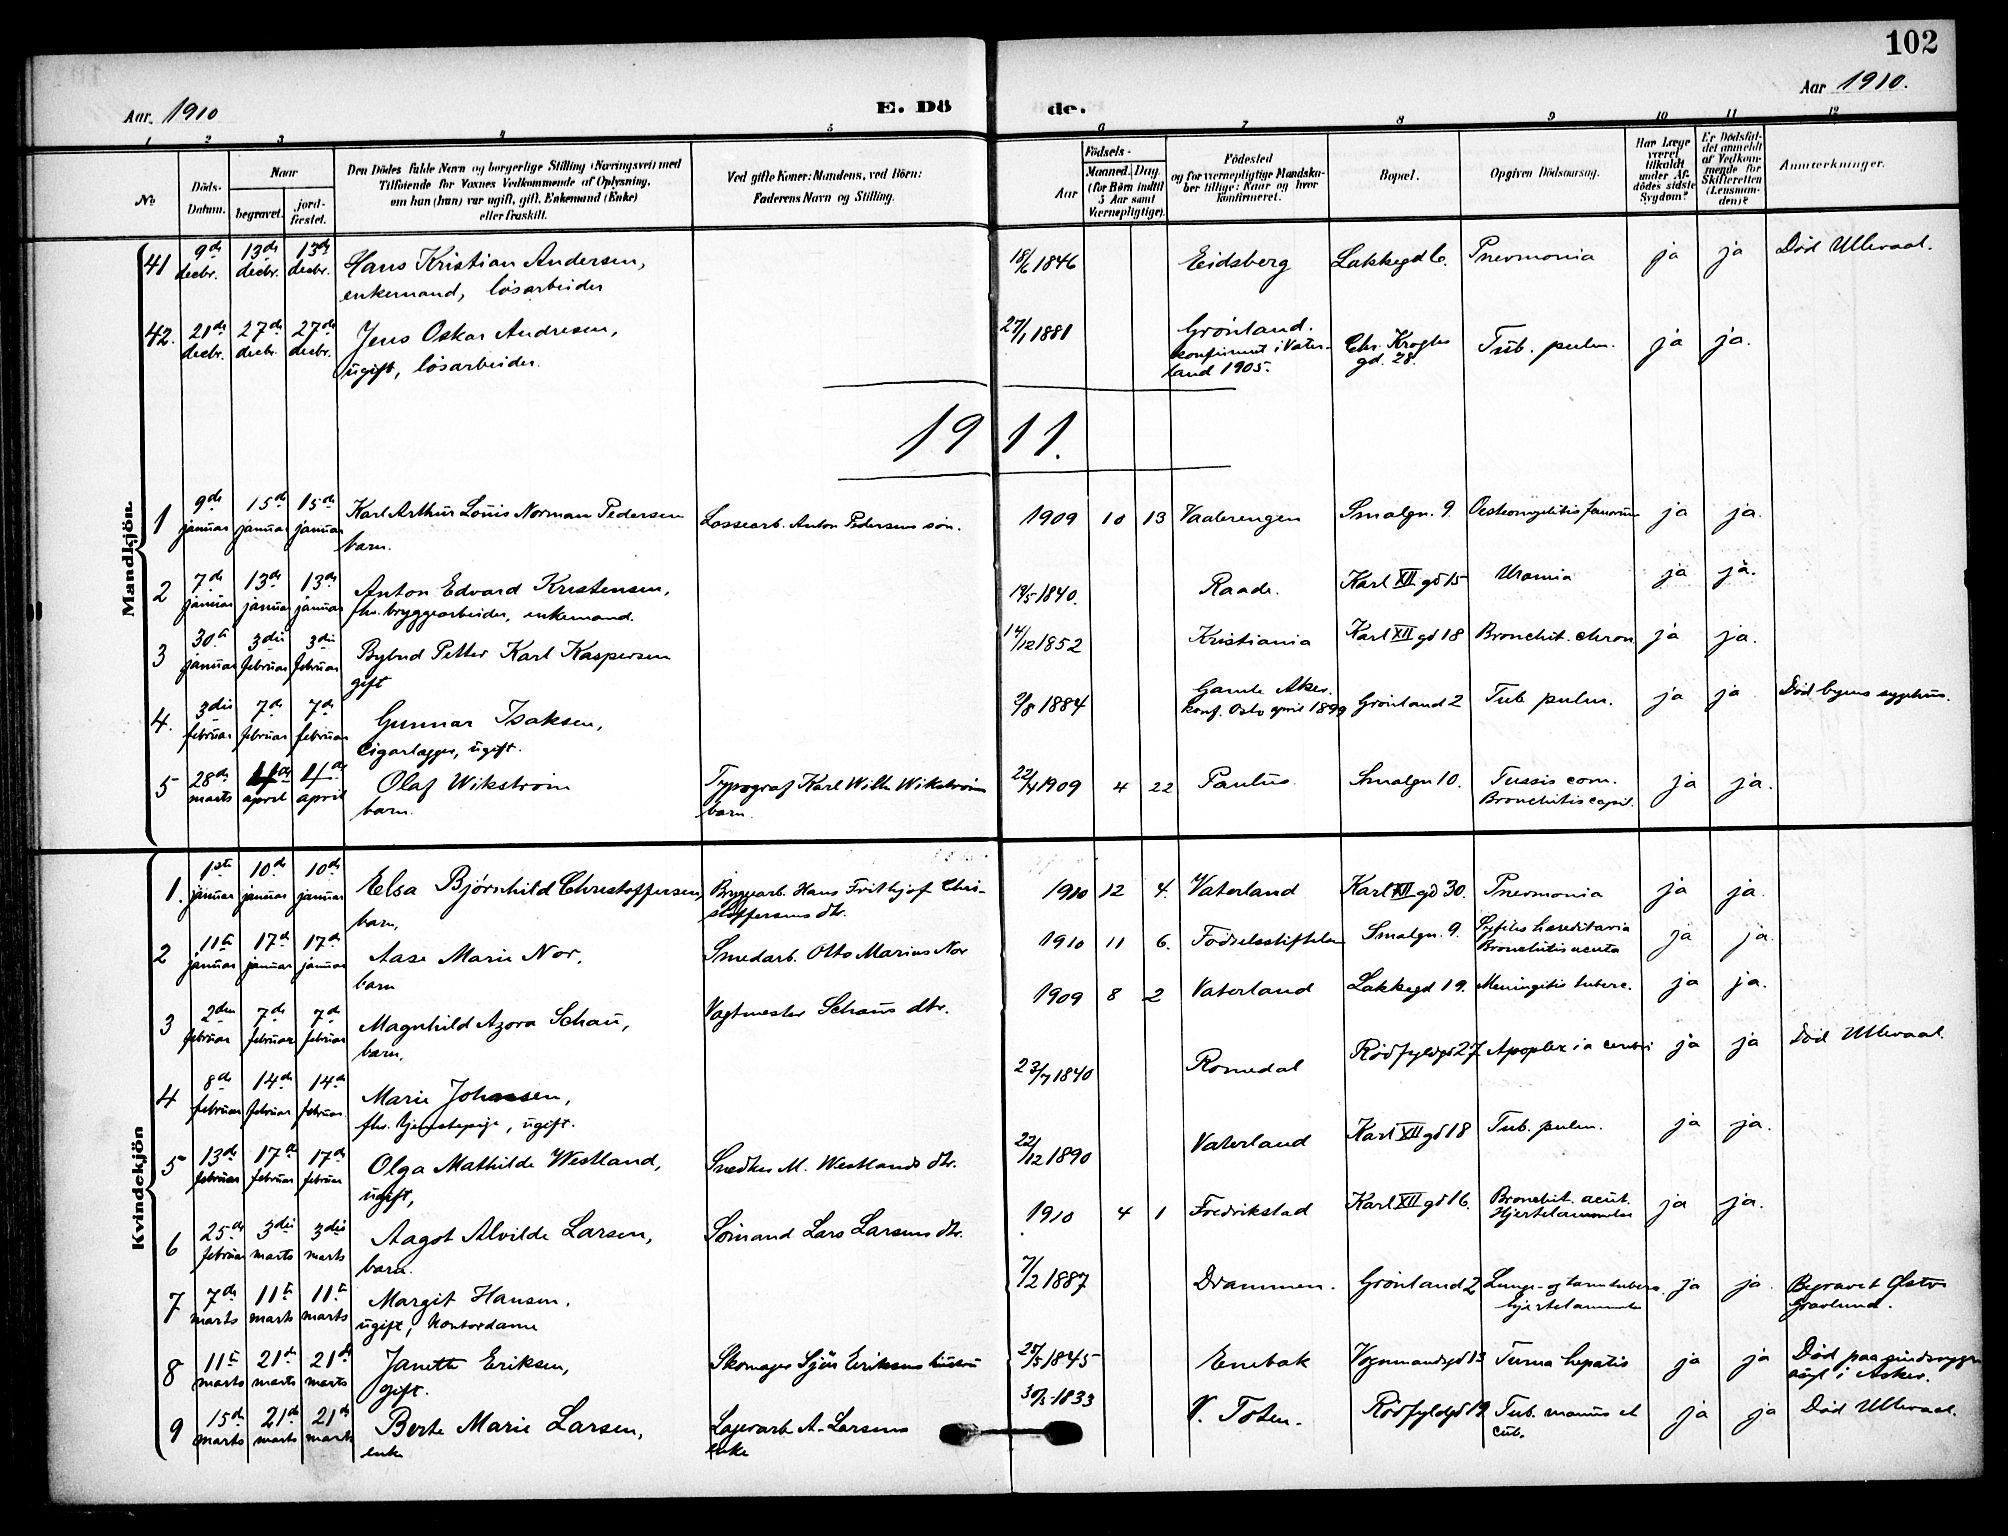 102
Aar 1910
E. Dö
de.
Aar 1910.
1 2 3 4 5 6 7 8 9 10 11 12
No
Döds-Datum.
Naar
begravet.
jord-fæstet.
Den Dödes fulde Navn og borgerlige Stilling (Næringsvei) med
Tilføiende for Voxnes Vedkommende af Oplysning,
om han (hun) var ugift, gift, Enkemand (Enke)
eller fraskilt.
Ved gifte Koner: Mandens, ved Börn:
Faderens Navn og Stilling.
Födsels-
Aar
Maaned. Dag.
(for Børn indtil
5 Aar samt
Værnepligtige).
Födested
og for værnepligtige Mandska-
ber tillige: Naar og hvor
konfirmeret.
Bopæl.
Opgiven Dödsaarsag.
Har Læge
været
tilkaldt
under Af-
dödes sidste
Sygdom?
Er Dödsfal-
det anmeldt
af Vedkom-
mende for
Skifteretten
(Lensman-
den)?
Anmærkninger.
Mandkjön.
41 9de decbr. 13de decbr. 13de decbr. Hans Kristian Andersen, 18/6 1846 Eidsberg Lakkegd 6. Pnevmonia ja ja Död Ullevaal.
enkemand, løsarbeider
42. 21de decbr. 27de decbr. 27de decbr. Jens Oskar Andresen, 27/1 1881 Grønland. Chr. Kroghs gd. 28. Tub. pulm. ja ja.
ugift, løsarbeider. konfirmert i Vater-
land 1905.
1911.
1 9de januar 15de januar 15de januar Karl Arthur Louis Norman Pedersen Lossearb. Anton Pedersens søn. 1909 10 13 Vaalerengen Smalgn. 9. Oesteomyelitis femorum ja ja.
barn.
2 7de januar 13de januar 13de januar Anton Edvard Kristensen, 1840. Raade. Karl XII gd 15 Uramia ja ja.
fhv. bryggearbeider, enkemand.
3 30te januar 3die februar 3die februar Petter Karl Kaspersen 14/12 1852 Kristiania Karl XII gd 18 Bronchit. chron ja ja.
gift
4. 3die februar 7de februar 7de februar Gunnar Isaksen, 2/8 1884 Gamle Aker. Grønland 2 Tub. pulm. ja ja Död byens sygehus.
Cigarlægger, ugift. konf. Oslo april 1899
5 28de marts april april Olaf Wikstrøm Typograf Karl Wilh. Wikstrøms 22/4 1909 4 22 Paulus. Smalgn 10. Tussis conv. ja ja.
barn. barn. Bronchitis capil.
Kvindekjön
1. 1ste januar 10de januar 10de januar Elsa Bjørnhild Christoffersen, Bryggearb. Hans Frithjof Chri- 1910 12 4. Vaterland Karl XII gd 30. Pnevmonia ja ja.
barn, stoffersens dtr.
2 11te januar 17de januar 17de januar Aase Marie Nor, Smedarb. Otto Marius Nor 1910 11 6. Fødselsstiftelsen Smalgn. 9. Syfiles hæreditaria ja ja.
barn Bronchitis acuta
3 2den februar 7de februar 7de februar Magnhild Azora Schau, Vagtmester Schaus dtr. 1909 8 2 Vaterland Lakkegd 19. Meningitis tuberc. ja ja.
barn,
4 8de februar 14de februar 14de februar Marie Johansen, 23/7 1840 Romedal Rødfyldgd 27 Apoplexia cerebri ja ja Död Ullevaal.
fhv. tjenestepige, ugift.
5 13de februar 17de februar 17de februar Olga Mathilde Westland, M. Westlands dtr. 22/12 1890 Vaterland Karl XII gd 18 Tub. pulm. ja ja.
ugift,
6 25de februar 3die marts 3die marts Aagot Alvilde Larsen, Sømand Lars Larsens dtr. 1910 4 1 Fredrikstad Karl XII gd 16. Bronchit. acut. ja ja.
barn. Hjertelammelse
7 7de marts 11te marts 11te marts Margit Hansen. 7/2 1887 Drammen. Grønland 2 Lunge- og tarmtuberc. ja ja. Begravet Østre
ugift, Kontordame hjertelammelse Gravlund.
8 11te marts 21de marts 21de marts Janette Eriksen, Skomager Eriksens hustru 25/5 1845 Enebak Vognmandsgd 13 Tuma hepatis ja ja Död paa sindssyge
gift. asyl i Asker.
9 15de marts 21de marts 21de marts Berte Marie Larsen, Lagerarb. A. Larsens 1833 V. Toten. Rødfyldgd 19 Tub. manus et ja ja Död Ullevaal.
enke enke cub.